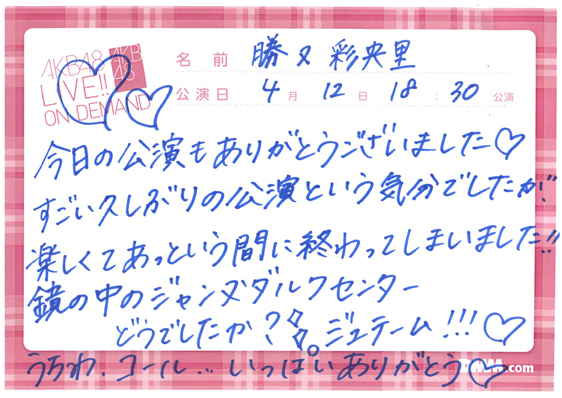 AKB48
LIVE!!
ON DEMAND
AKB
48
名前 勝又 彩央里
公演日 4月 12日 18:30 公演
今日の公演もありがとうございました♡
すごい久しぶりの公演という気分でしたが、
楽しくてあっという間に終わってしまいました!!
鏡の中のジャンヌダルクセンター
どうでしたか?ジュテーム!!!♡
うちわ、コール...いっぱいありがとう♡
DMM.com